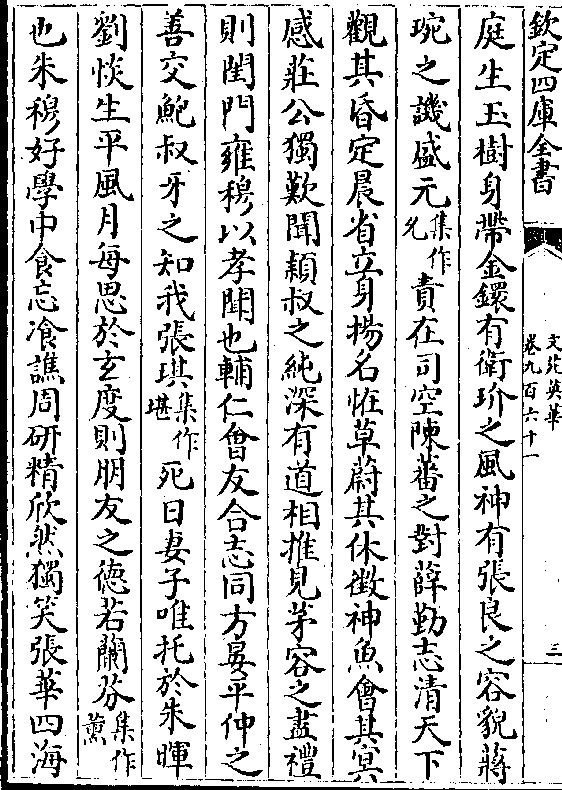 欽定四庫全書
文苑英華
卷九百六十一
三
庭生玉樹身帶金鐶有衛玠之風神有張良之容貌蔣
琬之譏盛元集作允責在司空陳蕃之對薛勤志清天下
觀其昏定晨省立身揚名恠草蔚其休徴神魚會其冥
感莊公獨歎聞頴叔之純深有道相推見茅容之盡禮
則閨門雍穆以孝聞也輔仁會友合志同方晏平仲之
善交鮑叔牙之知我張琪集作堪死日妻子唯托於朱暉
劉惔生平風月每思於玄度則朋友之德若蘭芬集作薰
也朱穆好學中食忘飡譙周研精欣然獨笑張華四海